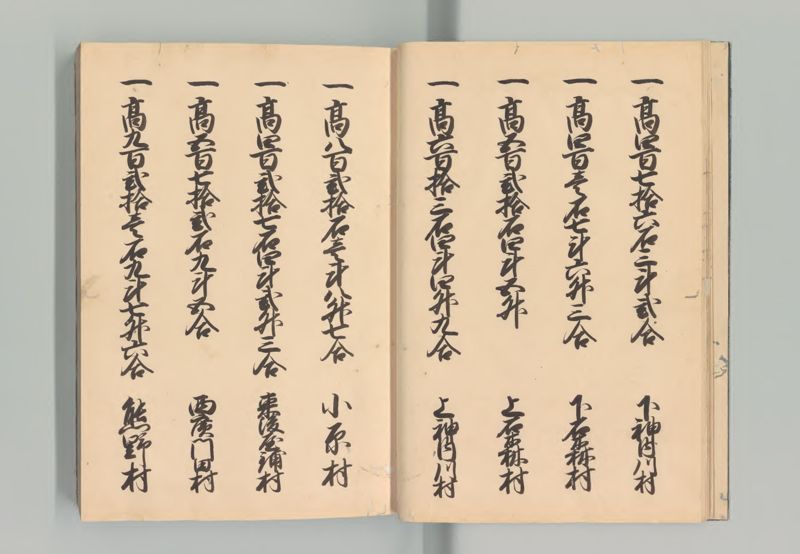 一高四百七拾六石三斗弐合 下神内川村
一高四百壱石七斗六升三合 下石森村
一高五百弐拾石四斗五升 上石森村
一高六百拾三石四斗四升九合 上神内川村
一高八百弐拾石壱斗八升七合 小原村
一高四百弐拾七石四斗弐升三合 東後屋鋪村
一高五百七拾弐石九斗五合 西廣門田村
一高九百弐拾壱石九斗七升六合 熊野村